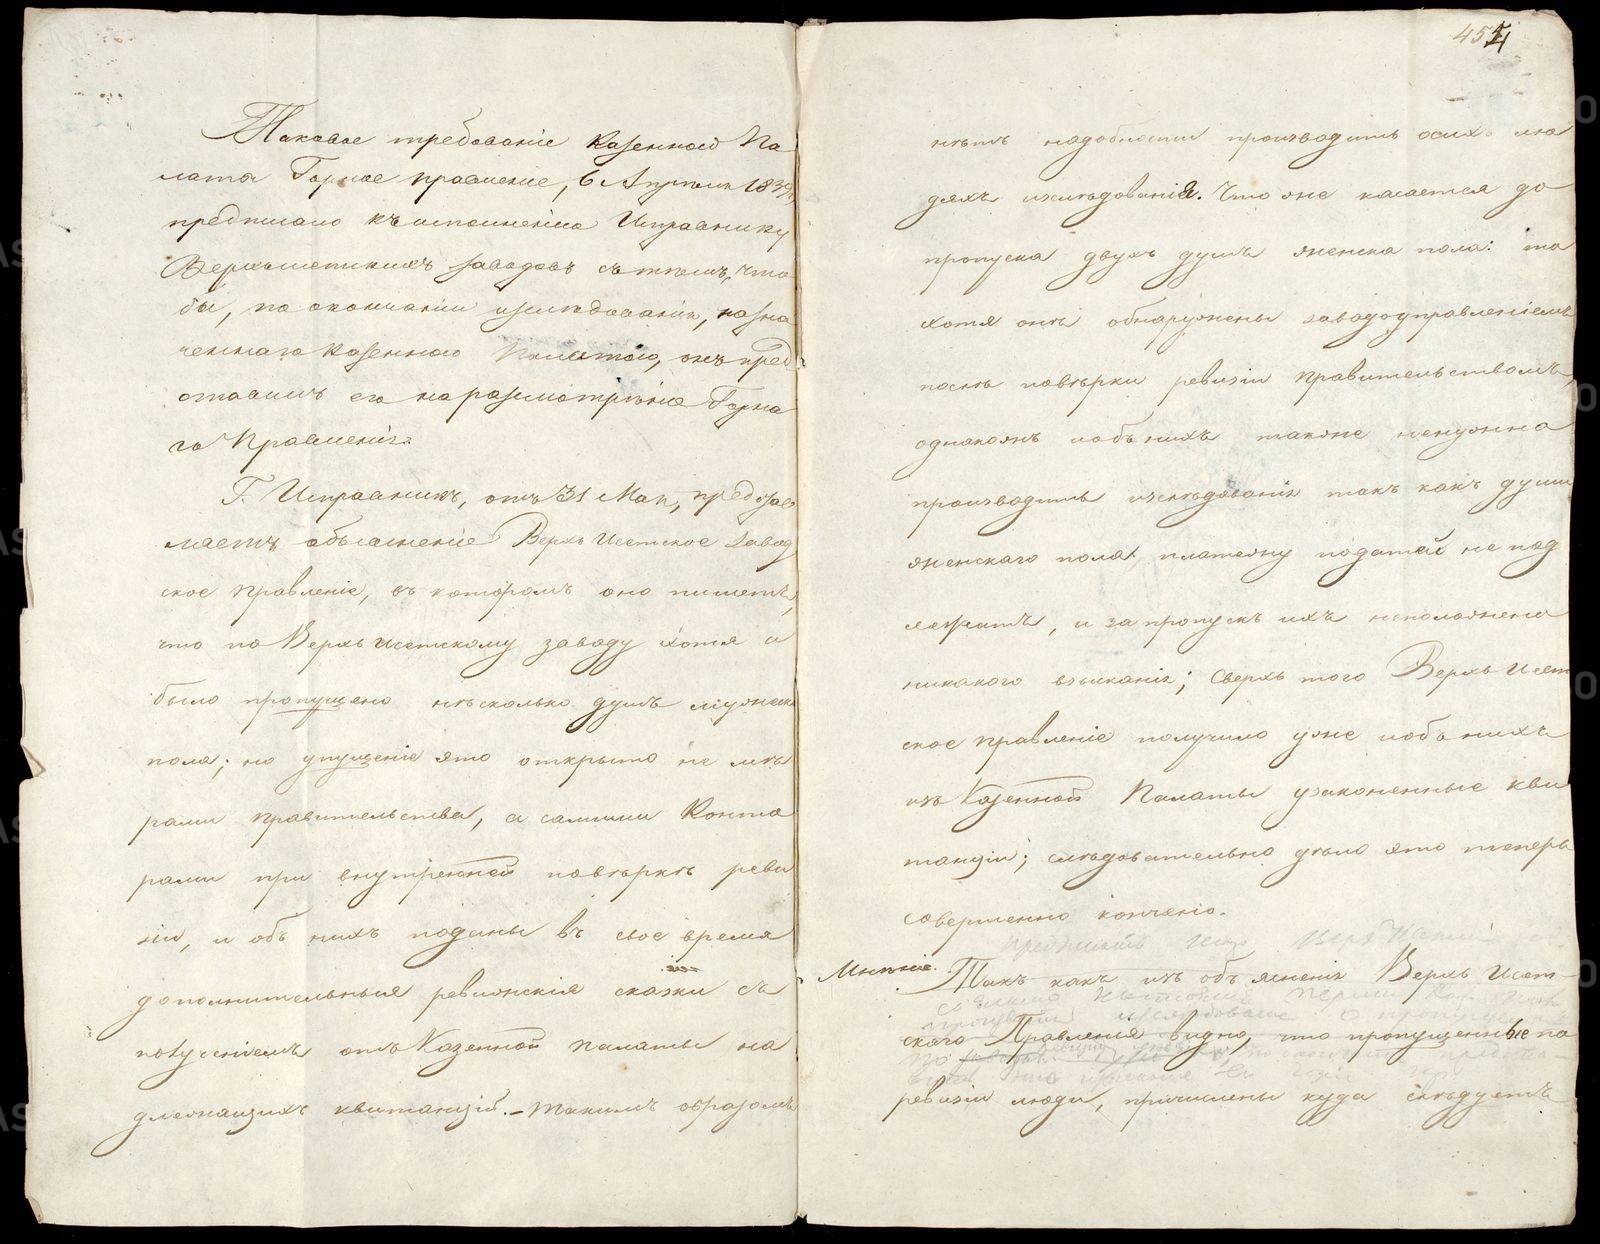 Таковое требованіе Казенной Па
латы Горное правленіе, 6 Апреля 1839,
предписало къ исполненію Исправнику
Верхъисетскихъ заводовъ съ тѣмъ, что
бы, по окончаніи изслѣдованія, назна
ченнаго Казенною Палатою, онъ пред
ставилъ его на разсмотрѣніе Горна
го Правленія.
Г. Исправникъ, отъ 31 Мая, представ
ляетъ объясненіе Верхъ Исетское Завод
ское Правленіе, въ которомъ оно пишетъ,
что по Верхъ Исетскому заводу хотя и
было пропущено нѣсколько душъ мужеска
пола; но упущеніе это открыто не мѣ
рами правительства, а самими Конто
рами при внутренней повѣркѣ реви
зіи, и объ нихъ поданы въ свое время
дополнительныя ревизскія сказки съ
полученіемъ отъ Казенной палаты на
длежащихъ квитанцій. - Такимъ образомъ
454
нѣтъ надобности производить о сихъ лю
дяхъ изслѣдованія. Что же касается до
пропуска двухъ душъ женска пола: то
хотя онѣ обнаружены заводоуправленіемъ
послѣ повѣрки ревизіи правительствомъ,
однакожъ и объ нихъ также ненужно
производить изслѣдованія такъ какъ души
женскаго пола, платежу податей не под
лежатъ, и за пропускъ ихъ неположено
никакого взысканія; сверхъ того Верхъ Исет
ское правленіе получило уже и объ нихъ
изъ Казенной Палаты узаконенные кви
танціи; слѣдовательно дѣло это теперь
совершенно кончено.
Мнѣніе. Такъ какъ изъ объясненія Верхъ Исет-
скаго Правленія видно, что пропущенные по
ревизіи люди, причислены куда слѣдуетъ